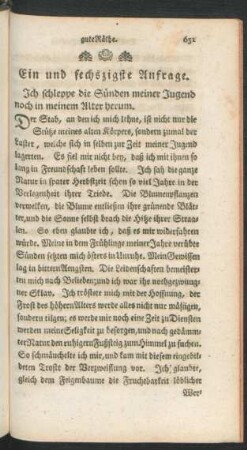 guteRäthe. 652
Ein und sechszigste Anfrage.
Ich schleppe die Sünden meiner Jugend
noch in meinem Alter herum.
Der Stab, an den ich mich lehne, ist nicht nur die
Stütze meines alten Körpers, sondern zumal der
Laster, welche sich in selben zur Zeit meiner Jugend
lagerten. Es fiel mir nicht bey, daß ich mit ihnen so
lang in Freundschaft leben sollte. Ich sah die ganze
Natur in spater Herbstzeit schon so viel Jahre in der
Verlegenheit ihrer Triebe. Die Blumenpflanzen
verwelken, die Blume entließen ihre grünende Blät-
ter, und die Sonne selbst brach die Hitze ihrer Straa-
len. So eben glaubte ich, daß es mir widerfahren
würde. Meine in dem Frühlinge meiner Jahre verübte
Sünden setzten mich öfters in Unruhe. Mein Gewissen
lag in bittern Aengsten. Die Leidenschaften bemeister-
ten mich nach Belieben; und ich war ihr nothgezwung-
ner Sklav. Ich tröstete mich mit der Hoffnung, der
Frost des höhern Alters werde alles nicht nur mäßigen,
sondern tilgen; es werde mir noch eine Zeit zu Diensten
werden meine Seligkeit zu besorgen, und nach gedämm-
ter Natur den ruhigern Fußsteig zum Himmel zu suchen.
So schmäuchelte ich mir, und kam mit diesem eingebil-
deten Troste der Verzweiflung vor. Ich glaubte,
gleich dem Feigenbaume die Fruchtbarkeit löblicher
Wer-